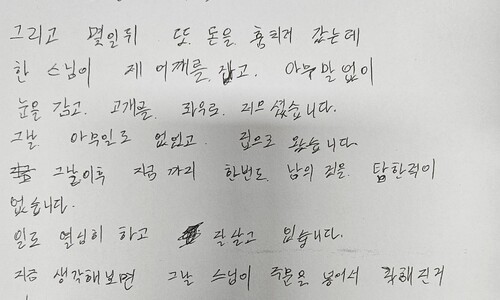 그리고 몇일뒤 또 돈을 훔치러 갔는데
한 스님이 제 어깨를 잡고, 아무말없이
눈을 감고, 고개를 좌우로 저으셨습니다.
그날 아무일도 없었고 집으로 왔습니다
그날이후 지금 까지 한번도 남의 것을 탐한적이
없습니다.
일도 열심히 하고 잘살고 있습니다.
지금 생각해보면 그날 스님이 주문을 넣어서 착해진거